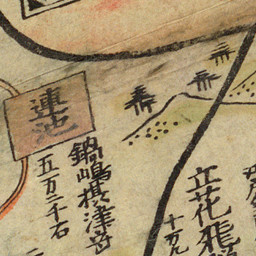 蓮池
鍋嶋摂津守
五万二千石
立花飛
十万九